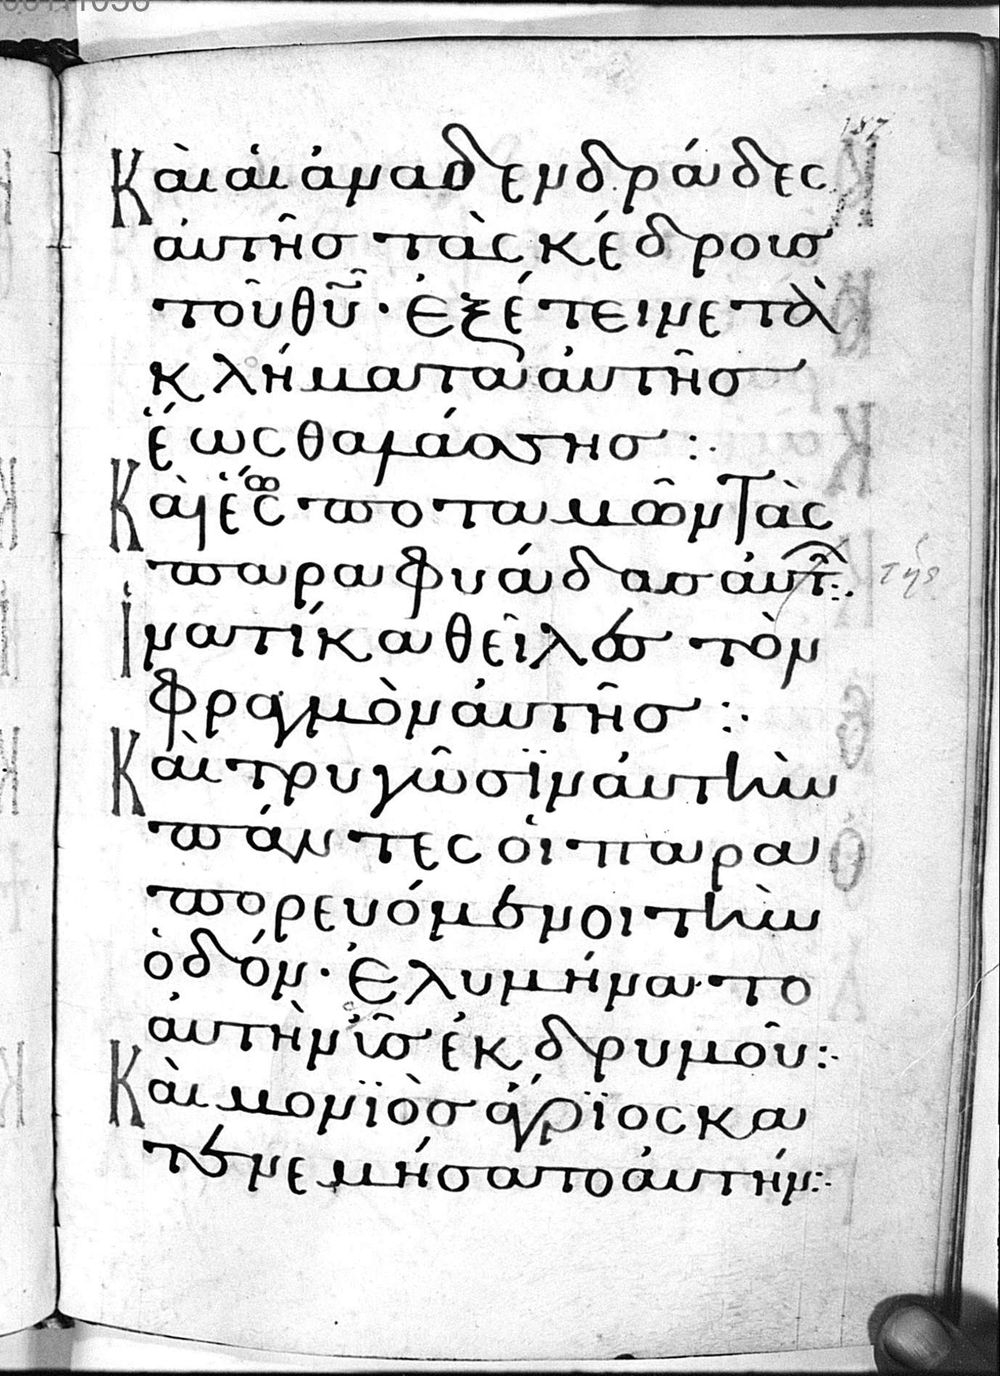 187
Καὶ αἱ ἀναδενδράδες
ἀυτῆσ τὰς κέδρουσ
τοῦ θῦ· Ἐξέτεινε τὰ
κλήματα ἀυτῆσ
ἕως θαλάσσησ :·
Καὶ ἕως ποταμῶν τὰς
παραφυάδασ ἀυτ :· τῆς
Ἱνατί καθεῖλεσ τὸν
φραγμὸν ἀυτῆσ :·
Καὶ τρυγῶσϊν ἀυτὴν
πάντες οἱ παρα
πορευόμενοι τὴν
ὁδόν· Ἐλυμήνατο
ἀυτὴν ὗσ ἐκ δρυμοῦ :·
Καὶ μονϊὸσ ἄγρϊος κα
τενεμήσατο ἀυτήν :·